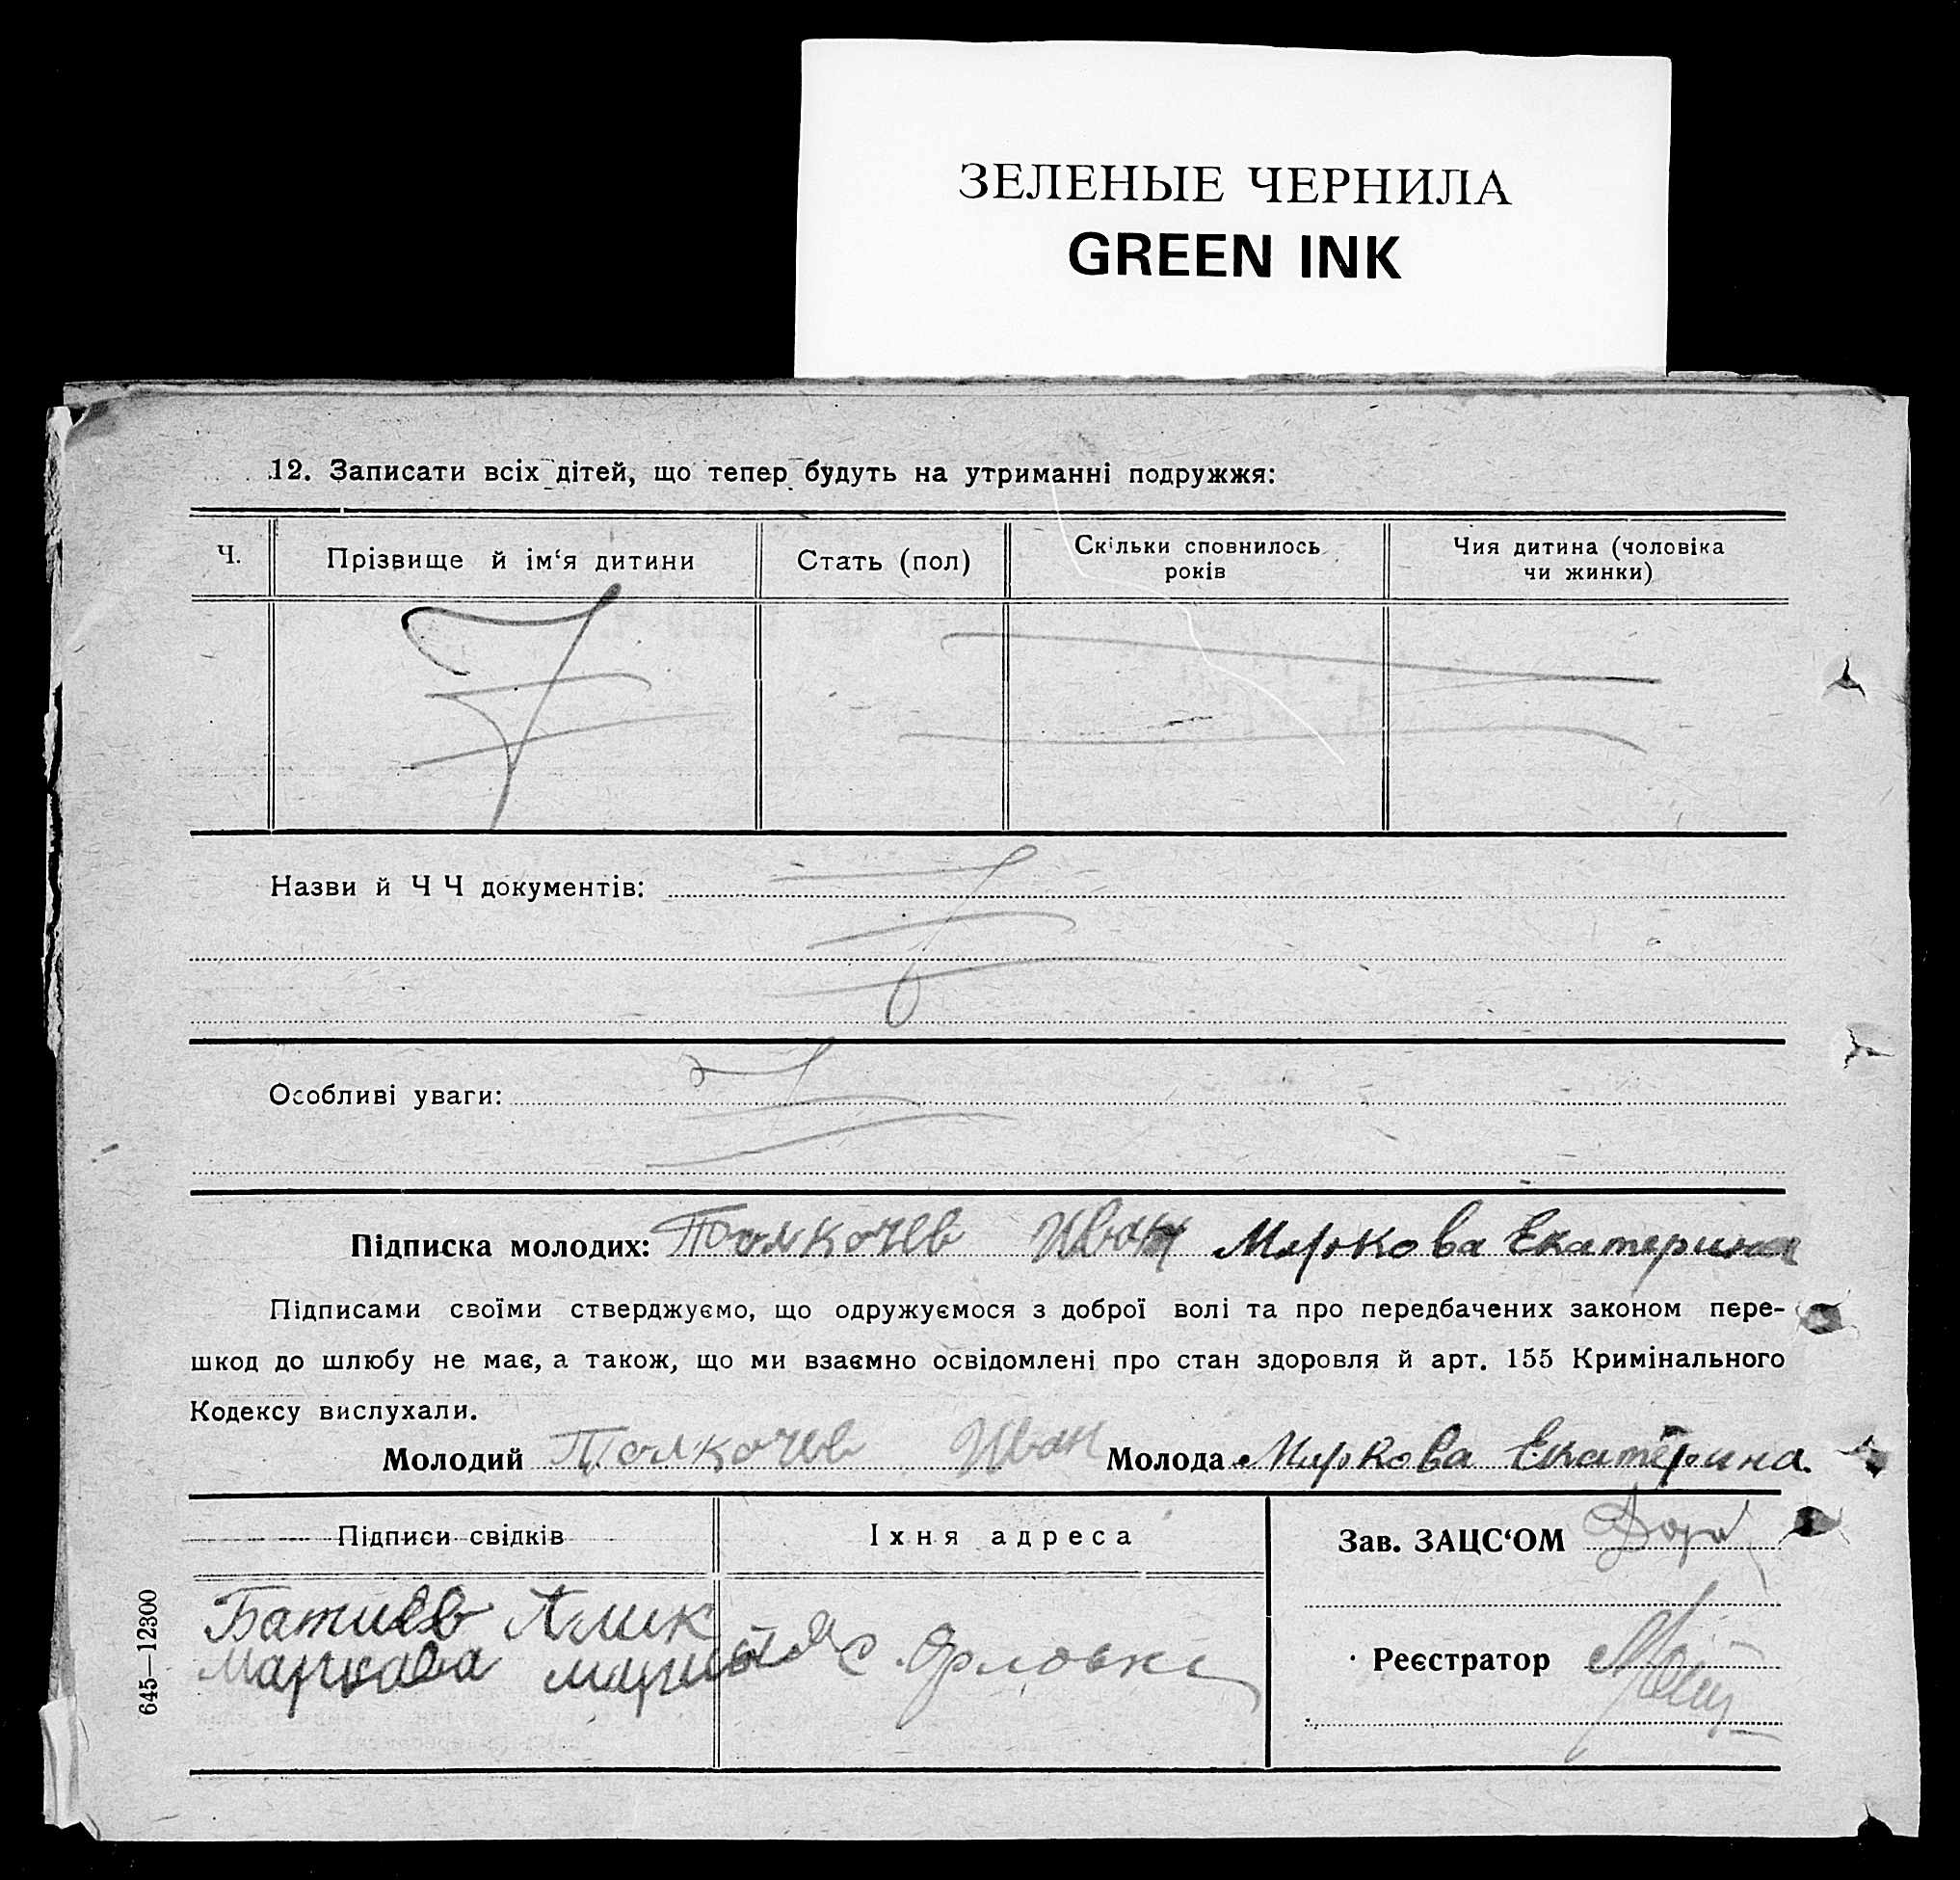 ЗЕЛЕНЫЕ ЧЕРНИЛА
GREEN INK
12. Записати всіх дітей, що тепер будуть на утриманні подружжя:
Ч. Прізвище й ім‘я дитини Стать (пол) Скільки сповнилось років Чия дитина (чоловіка чи жинки)
Назви й Ч Ч документів:
Особливі уваги:
Підписка молодих: Толкачев Иван Маркова Екатерина
Підписами своїми стверджуємо, що одружуємося з доброї волі та про передбачених законом пере-
шкод до шлюбу не має, а також, що ми взаємно освідомлені про стан здоровля й арт. 155 Кримінального
Кодексу вислухали.
Молодий Толкачев Иван Молода Маркова Екатерина
Підписи свідків Їхня адреса Зав. ЗАЦС‘ОМ
Батиев
Маркова с. Орловка Реєстратор
645—12300